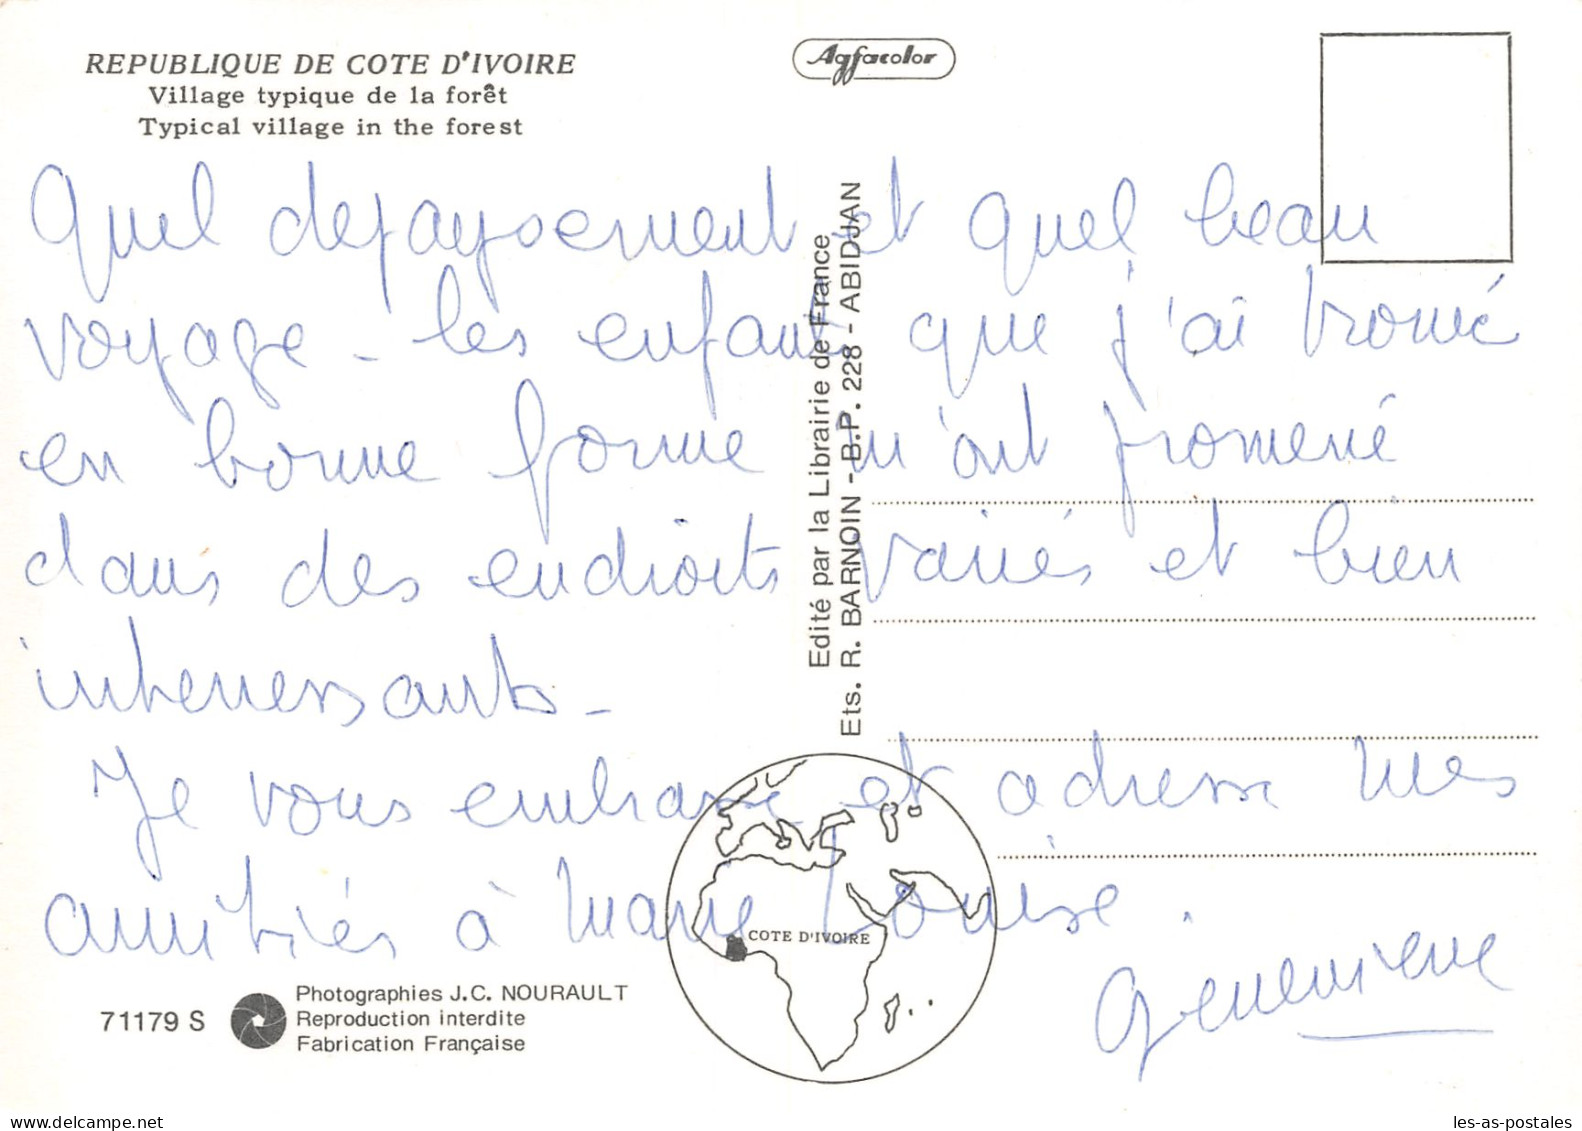 REPUBLIQUE DE COTE D'IVOIRE
Village typique de la forêt
Typical village in the forest
Agfacolor
Quel depaysement et quel beau
voyage - les enfants que j'ai trouvé
en bonne forme m'ont promené
dans des endroits variés et bien
interressants -
Je vous embrasse et adresse mes
amitiés à Marie Louise.
Genevieve
Edité par la Librairie de France
Ets. R. BARNOIN - B.P. 228 - ABIDJAN
COTE D'IVOIRE
71179 S
Photographies J.C. NOURAULT
Reproduction interdite
Fabrication Française
les-as-postales